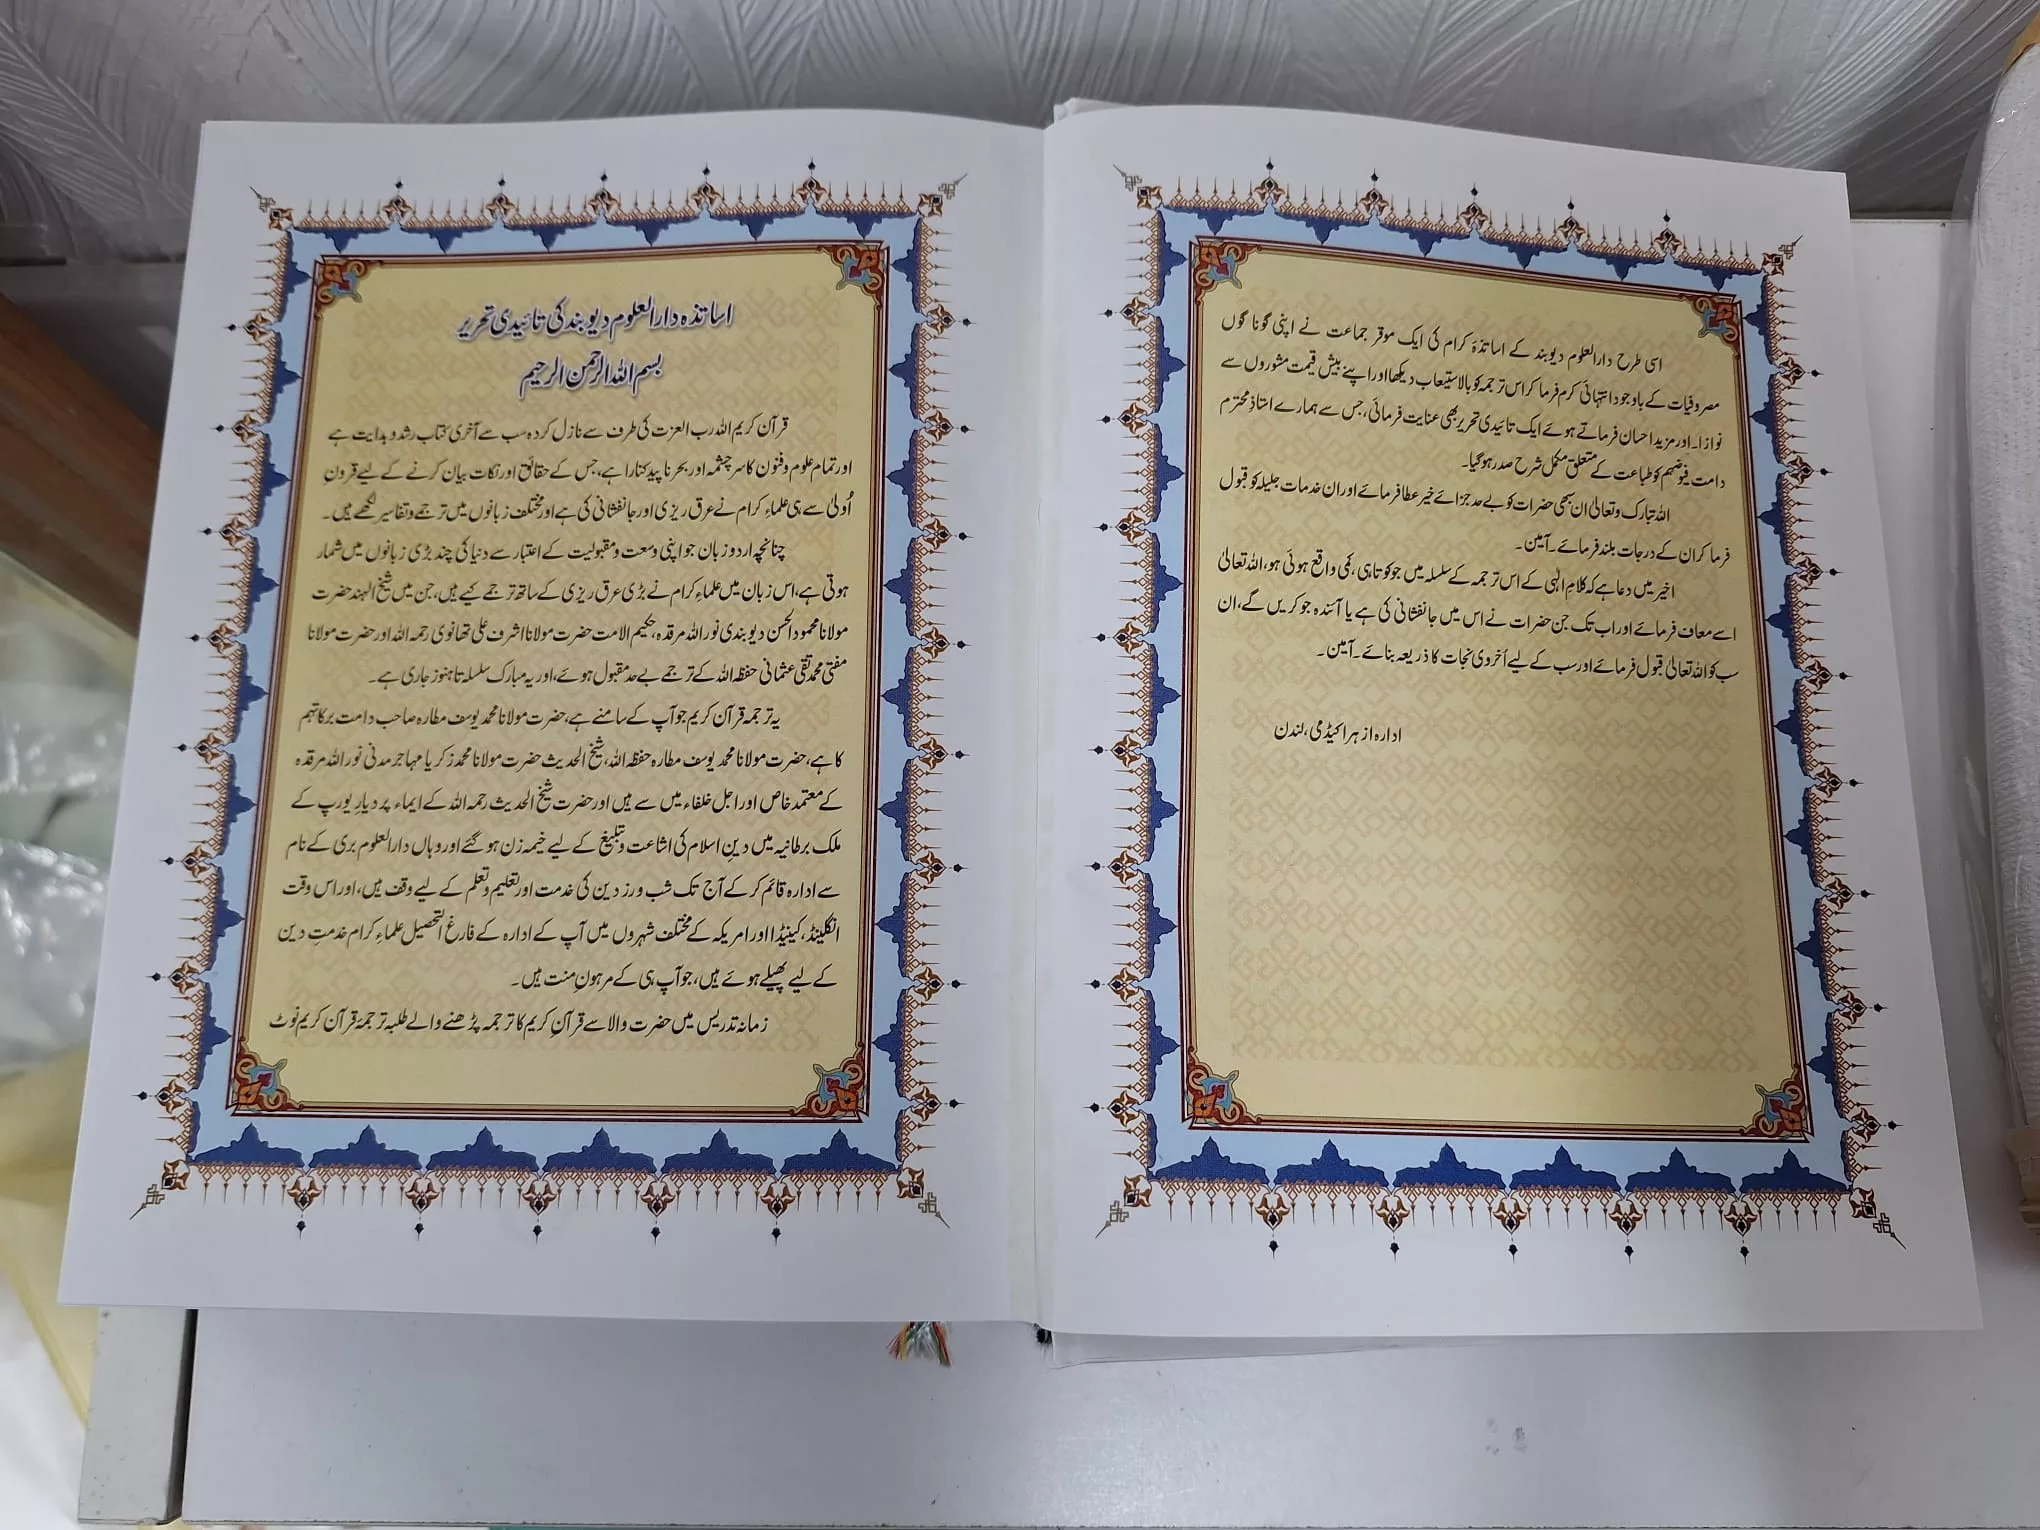 اسی طرح دارالعلوم دیوبند کے اساتذۂ کرام کی ایک موقر جماعت نے اپنی گوناگوں
مصروفیات کے باوجود انتہائی کرم فرما کر اس ترجمہ کو بالاستیعاب دیکھا اور اپنے بیش قیمت مشوروں سے
نوازا۔ اور مزید احسان فرماتے ہوئے ایک تائیدی تحریر بھی عنایت فرمائی، جس سے ہمارے استاذِ محترم
دامت فیوضہم کو طباعت کے متعلق مکمل شرح صدر ہوگیا۔
اللہ تبارک وتعالیٰ ان سبھی حضرات کو بے حد جزائے خیر عطا فرمائے اور ان خدمات جلیلہ کو قبول
فرما کر ان کے درجات بلند فرمائے۔ آمین۔
اخیر میں دعا ہے کہ کلامِ الٰہی کے اس ترجمہ کے سلسلہ میں جو کوتاہی، کمی واقع ہوئی ہو، اللہ تعالیٰ
اسے معاف فرمائے اور اب تک جن حضرات نے اس میں جانفشانی کی ہے یا آئندہ جو کریں گے، ان
سب کو اللہ تعالیٰ قبول فرمائے اور سب کے لیے اُخروی نجات کا ذریعہ بنائے۔ آمین۔
ادارہ ازہر اکیڈمی، لندن
اساتذہ دارالعلوم دیوبند کی تائیدی تحریر
بسم اللہ الرحمن الرحیم
قرآن کریم اللہ رب العزت کی طرف سے نازل کردہ سب سے آخری کتاب رشد و ہدایت ہے
اور تمام علوم وفنون کا سرچشمہ اور بحر ناپید کنارا ہے، جس کے حقائق اور نکات بیان کرنے کے لیے قرونِ
اُولیٰ سے ہی علماءِ کرام نے عرق ریزی اور جانفشانی کی ہے اور مختلف زبانوں میں ترجمے و تفاسیر لکھے ہیں۔
چنانچہ اردو زبان جو اپنی وسعت ومقبولیت کے اعتبار سے دنیا کی چند بڑی زبانوں میں شمار
ہوتی ہے، اس زبان میں علماءِ کرام نے بڑی عرق ریزی کے ساتھ ترجمے کیے ہیں، جن میں شیخ الہند حضرت
مولانا محمود الحسن دیوبندی نور اللہ مرقدہ، حکیم الامت حضرت مولانا اشرف علی تھانوی رحمہ اللہ اور حضرت مولانا
مفتی محمد تقی عثمانی حفظہ اللہ کے ترجمے بے حد مقبول ہوئے، اور یہ مبارک سلسلہ تا ہنوز جاری ہے۔
یہ ترجمہ قرآن کریم جو آپ کے سامنے ہے، حضرت مولانا محمد یوسف مطارہ صاحب دامت برکاتہم
کا ہے، حضرت مولانا محمد یوسف مطارہ حفظہ اللہ، شیخ الحدیث حضرت مولانا محمد زکریا مہاجر مدنی نور اللہ مرقدہ
کے معتمد خاص اور اجل خلفاء میں سے ہیں اور حضرت شیخ الحدیث رحمہ اللہ کے ایماء پر دیارِ یورپ کے
ملک برطانیہ میں دینِ اسلام کی اشاعت وتبلیغ کے لیے خیمہ زن ہو گئے اور وہاں دارالعلوم بری کے نام
سے ادارہ قائم کر کے آج تک شب و رز دین کی خدمت اور تعلیم وتعلم کے لیے وقف ہیں، اور اس وقت
انگلینڈ، کینیڈا اور امریکہ کے مختلف شہروں میں آپ کے ادارہ کے فارغ التحصیل علماءِ کرام خدمتِ دین
کے لیے پھیلے ہوئے ہیں، جو آپ ہی کے مرہونِ منت ہیں۔
زمانہ تدریس میں حضرت والا سے قرآنِ کریم کا ترجمہ پڑھنے والے طلبہ ترجمۂ قرآن کریم نوٹ